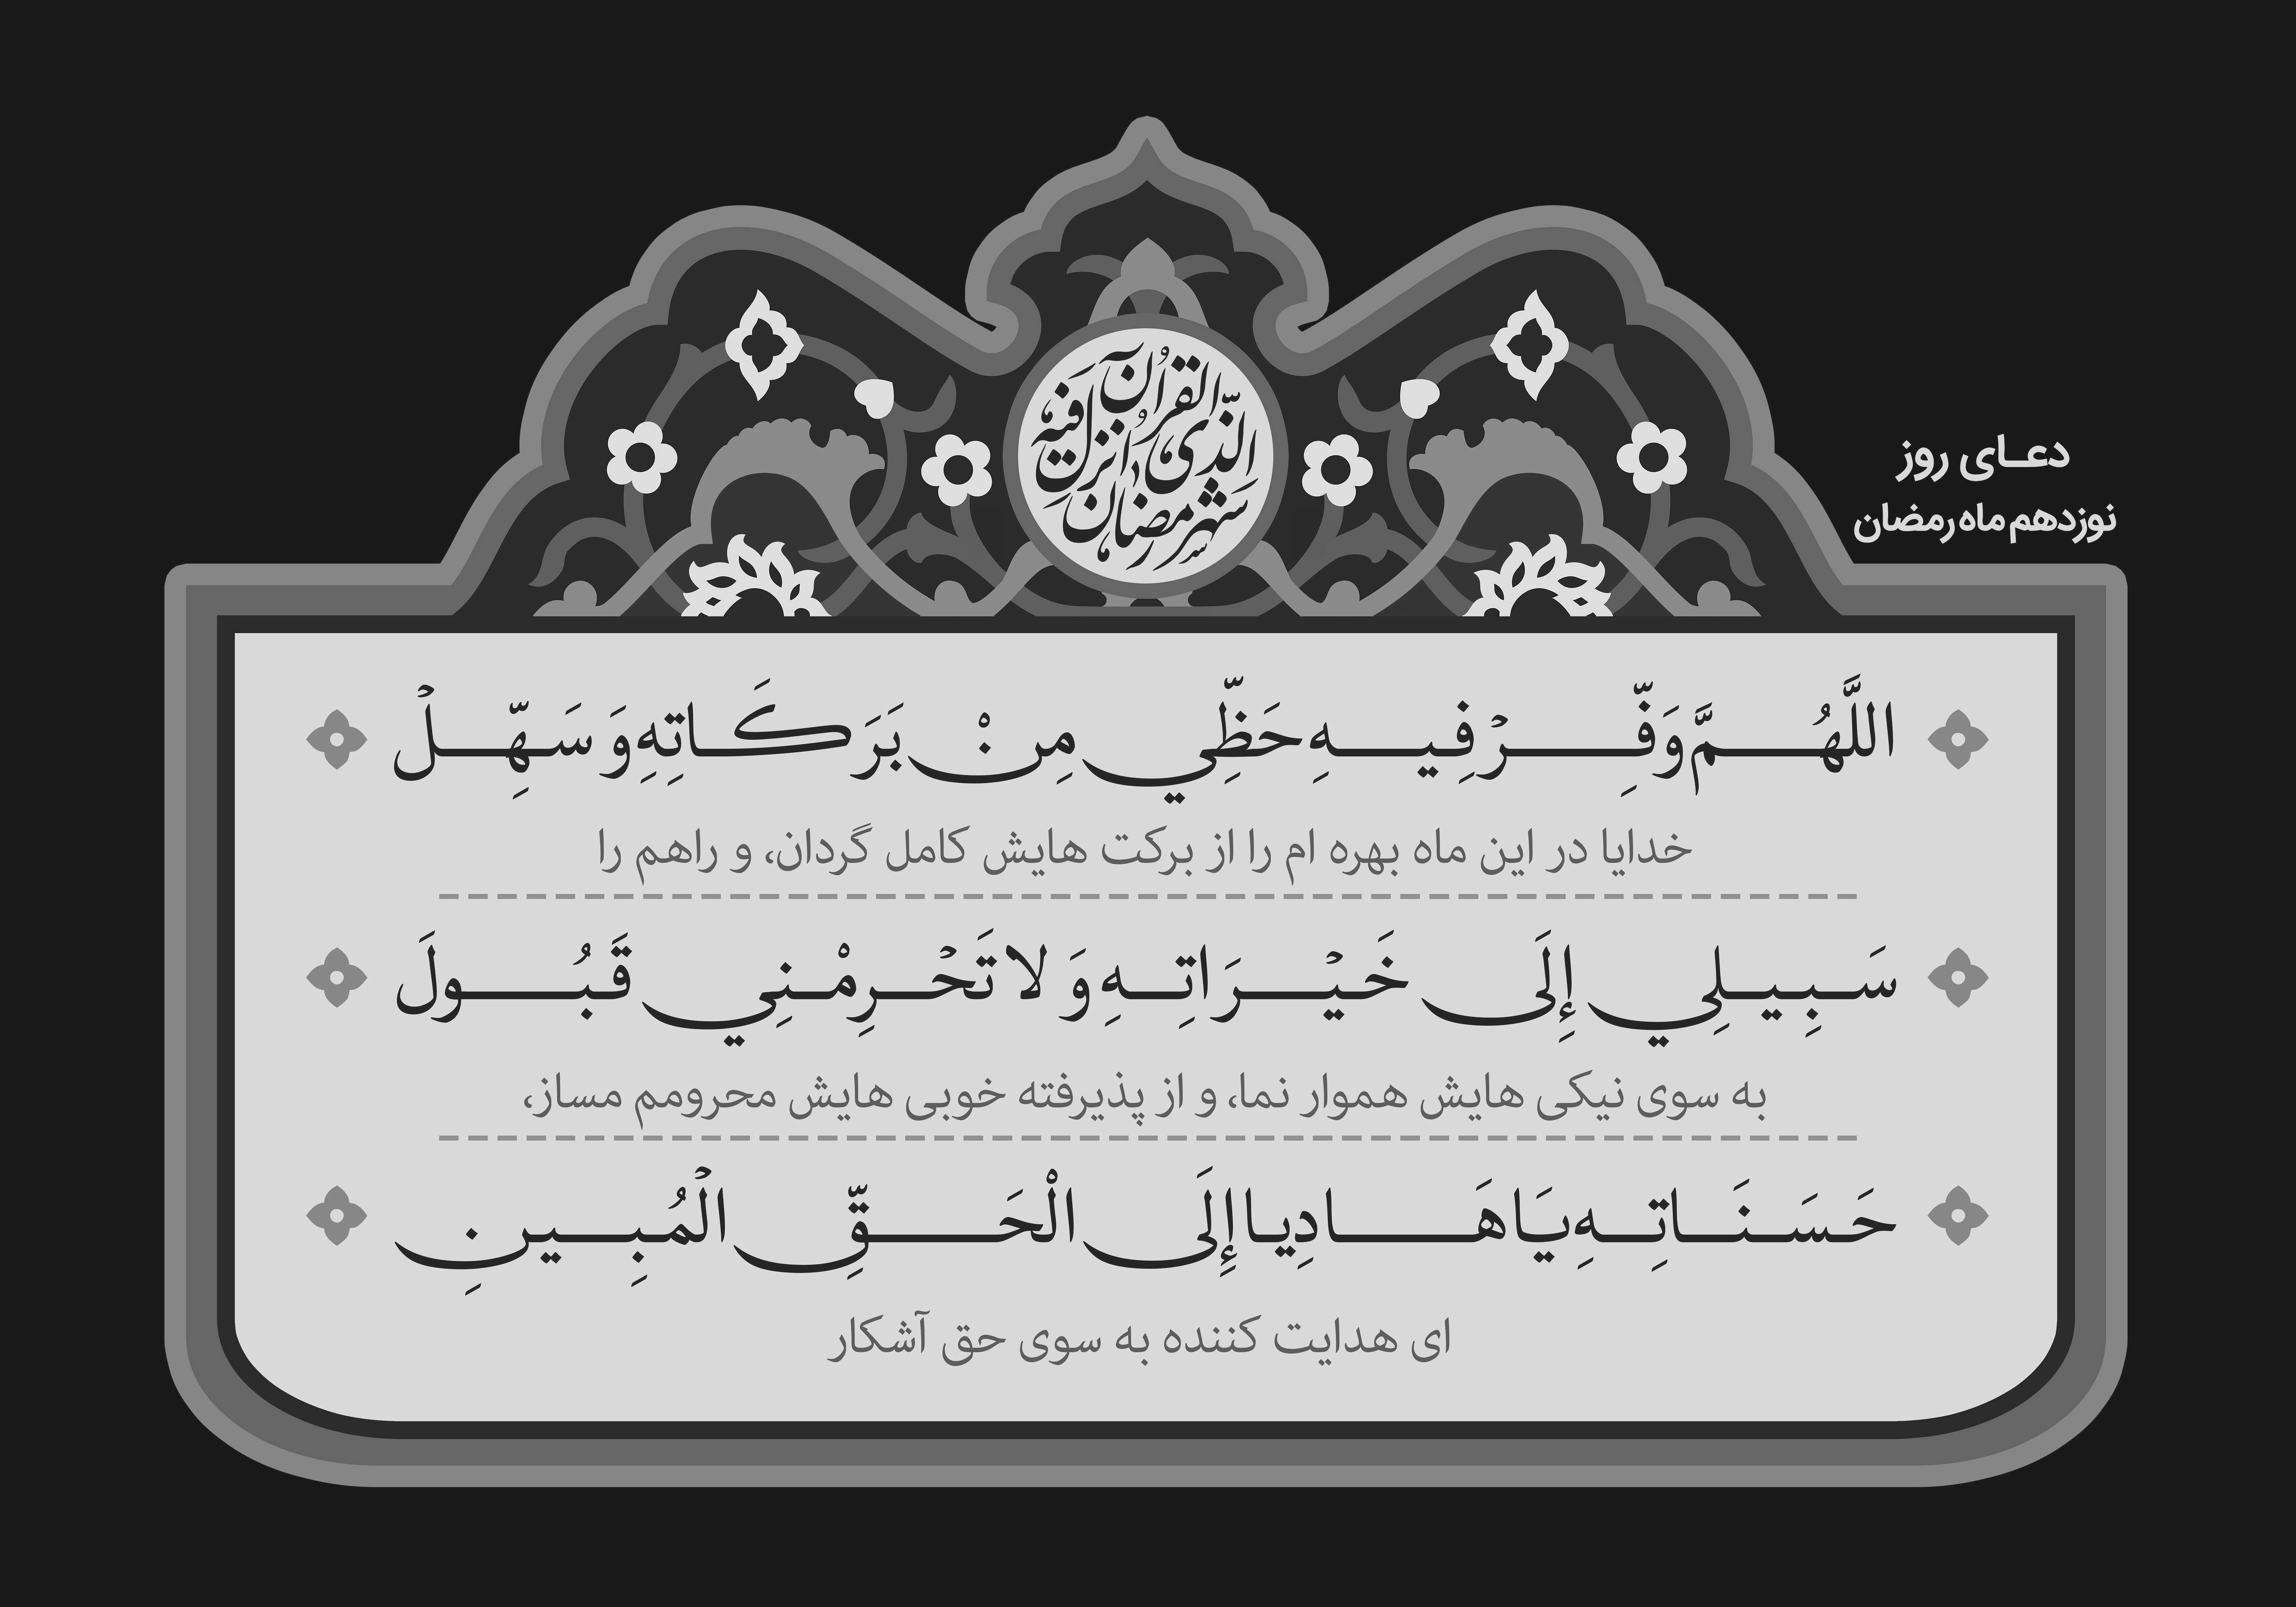 شهر رمضان الذی انزل فیه القرآن
دعای روز
نوزدهم ماه رمضان
اللَّهُمَّ وَفِّرْ فِيهِ حَظِّي مِنْ بَرَكَاتِهِ وَ سَهِّلْ
خدایا در این ماه بهره ام را از برکت هایش کامل گردان، و راهم را
سَبِيلِي إِلَى خَيْرَاتِهِ وَ لا تَحْرِمْنِي قَبُولَ
به سوی نیکی هایش هموار نما، و از پذیرفته خوبی هایش محرومم مساز،
حَسَنَاتِهِ يَا هَادِيا إِلَى الْحَقِّ الْمُبِينِ
ای هدایت کننده به سوی حق آشکار